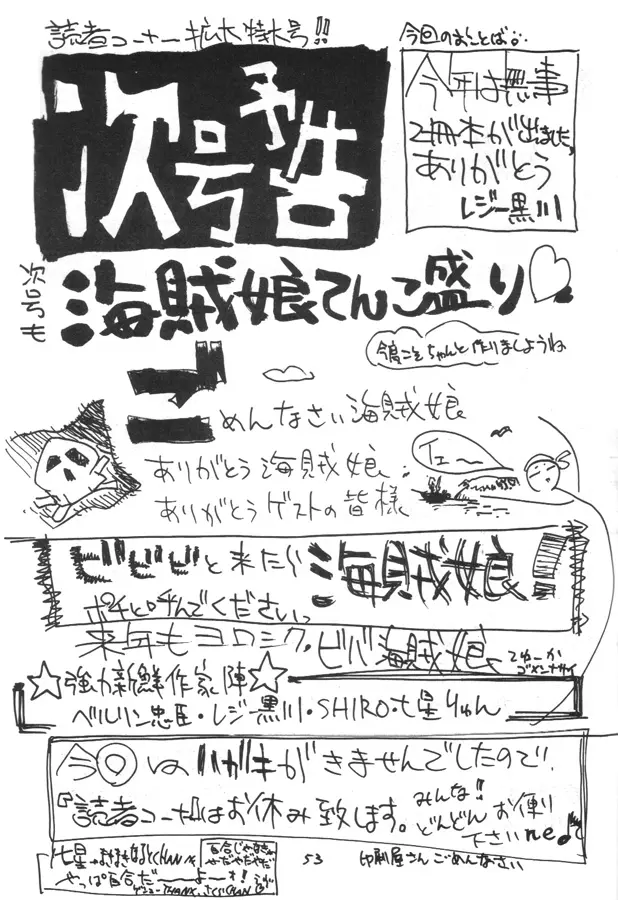 読者コーナー拡大特大号!!
次号予告
今回のまことば
今年は無事
2冊本が出ました。
ありがとう
レジー黒川
次号も
海賊娘てんこ盛り♡
今度こそちゃんと作りましょうね
ごめんなさい海賊娘
ありがとう海賊娘
ありがとうゲストの皆様
イエ〜
ビビビと来たら海賊娘!
ポチと呼んでください。
来年もヨロシク・ビバ海賊娘
てゆーか
ゴメンナサイ
☆強力新鮮作家陣☆
ベルリン忠臣・レジー黒川・SHIRO・七星りゅん
今回はハガキがきませんでしたので、
『読者コーナー』はお休み致します。
みんな!!
どんどんお便り
下さいne♪
やっぱ百合だーよー!
53
印刷屋さんごめんなさい